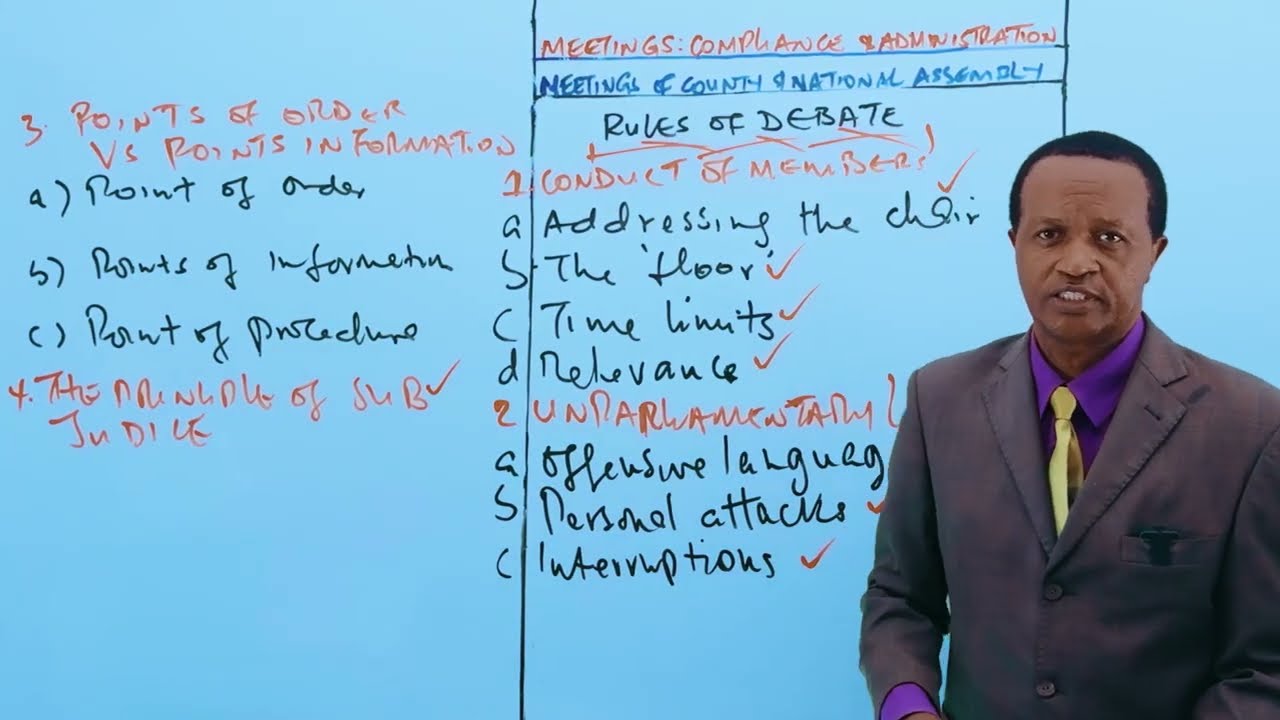 MEETINGS: COMPLIANCE & ADMINISTRATION
MEETINGS OF COUNTY & NATIONAL ASSEMBLY
RULES OF DEBATE
1. CONDUCT OF MEMBERS
a Addressing the chair
b. The 'floor'
c Time limits
d Relevance
2 UNPARLIAMENTARY
a offensive languag
b Personal attacks
c Interruptions
3. POINTS OF ORDER
VS POINTS INFORMATION
a) Point of order
b) Points of information
c) Point of procedure
4. THE PRINCIPLE OF SUB
JUDICE